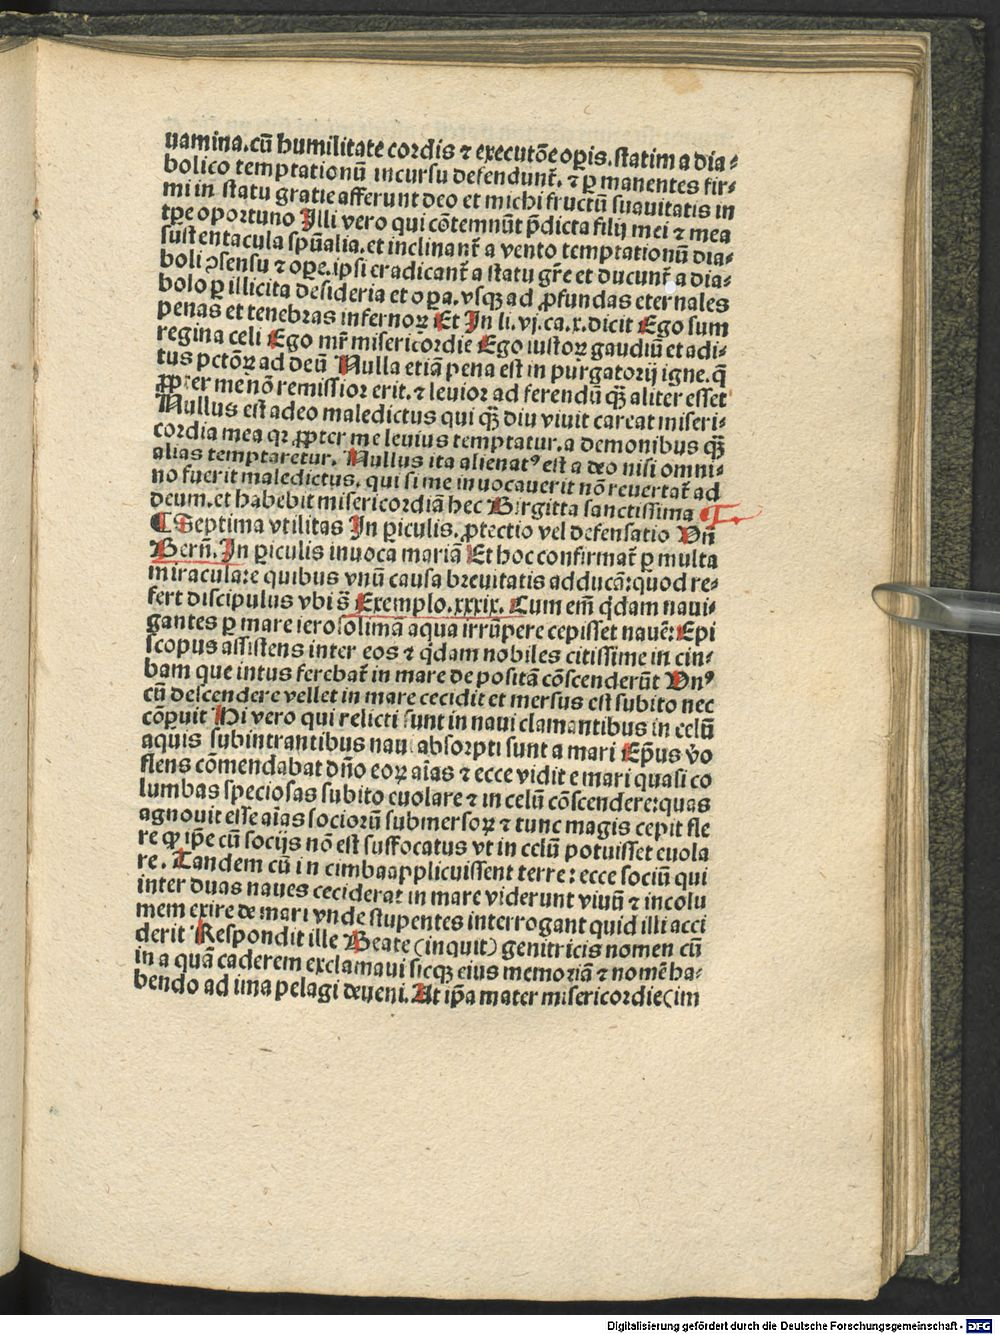 uamina.cū humilitate cordis ⁊ executōe oꝑis.statim a dia⸗
bolico temptationū incursu defendunt̄. ⁊ ꝑ manentes fir⸗
mi in statu gratie afferunt deo et michi fructū suauitatis in
tꝑe oportuno Illi vero qui cōtemnūt p̄dicta filij mei ⁊ mea
sustentacula spūalia.et inclinant̄ a vento temptationū dia⸗
boli ꝯsensu ⁊ oꝑe.ipsi eradicant̄ a statu gr̄e et ducunt̄ a dia⸗
bolo ꝑ illicita desideria et oꝑa.vsqꝫ ad ꝓfundas eternales
penas et tenebras infernoꝝ Et In li.vj.ca.x.dicit Ego sum
regina celi Ego mr̄ misericordie Ego iustoꝝ gaudiū et adi⸗
tus pctōꝝ ad deū Nulla etiā pena est in purgatorij igne.q̄
ꝓpter me nō remissior erit.⁊ leuior ad ferendū qꝫ̄ aliter esset
Nullus est adeo maledictus qui qꝫ̄ diu viuit careat miseri⸗
cordia mea qꝛ ꝓpter me leuius temptatur.a demonibus qꝫ̄
alias temptaretur. Nullus ita alienatꝰ est a deo nisi omni⸗
no fuerit maledictus. qui si me inuocauerit nō reuertat̄ ad
deum.et habebit misericordiā hec Birgitta sanctissima
¶ Septima vtilitas In ꝑiculis.ꝓtectio vel defensatio Vn̄
Bern̄.In ꝑiculis inuoca mariā Et hoc confirmat̄ ꝑ multa
miracula:e quibus vnū causa breuitatis adducā:quod re⸗
fert discipulus vbi s̄ Exemplo.xxxix. Cum em̄ q̇dam naui⸗
gantes ꝑ mare ierosolimā aqua irrūpere cepisset nauē:Epi
scopus assistens inter eos ⁊ q̇dam nobiles citissime in cin⸗
bam que intus ferebat̄ in mare de positā cōscenderūt Vnꝰ
cū descendere vellet in mare cecidit et mersus est subito nec
cōꝑuit Hi vero qui relicti sunt in naui clamantibus in celū
aquis subintrantibus naui absorpti sunt a mari Ep̄us v̊o
flens cōmendabat dn̄o eoꝝ aīas ⁊ ecce vidit e mari quasi co
lumbas speciosas subito euolare ⁊ in celū cōscendere:quas
agnouit esse aīas sociorū submersoꝝ ⁊ tunc magis cepit fle
re ꝙ ip̄e cū socijs nō est suffocatus vt in celū potuisset euola
re. Tandem cū in cimba applicuissent terre: ecce sociū qui
inter duas naues ceciderat in mare viderunt viuū ⁊ incolu
mem exire de mari vnde stupentes interrogant quid illi acci
derit Respondit ille Beate (inquit) genitricis nomen cū
in a quā caderem exclamaui sicqꝫ eius memoriā ⁊ nomē ha⸗
bendo ad ima pelagi deueni. At ip̄a mater misericordie(im
Digitalisierung gefördert durch die Deutsche Forschungsgemeinschaft - DFG